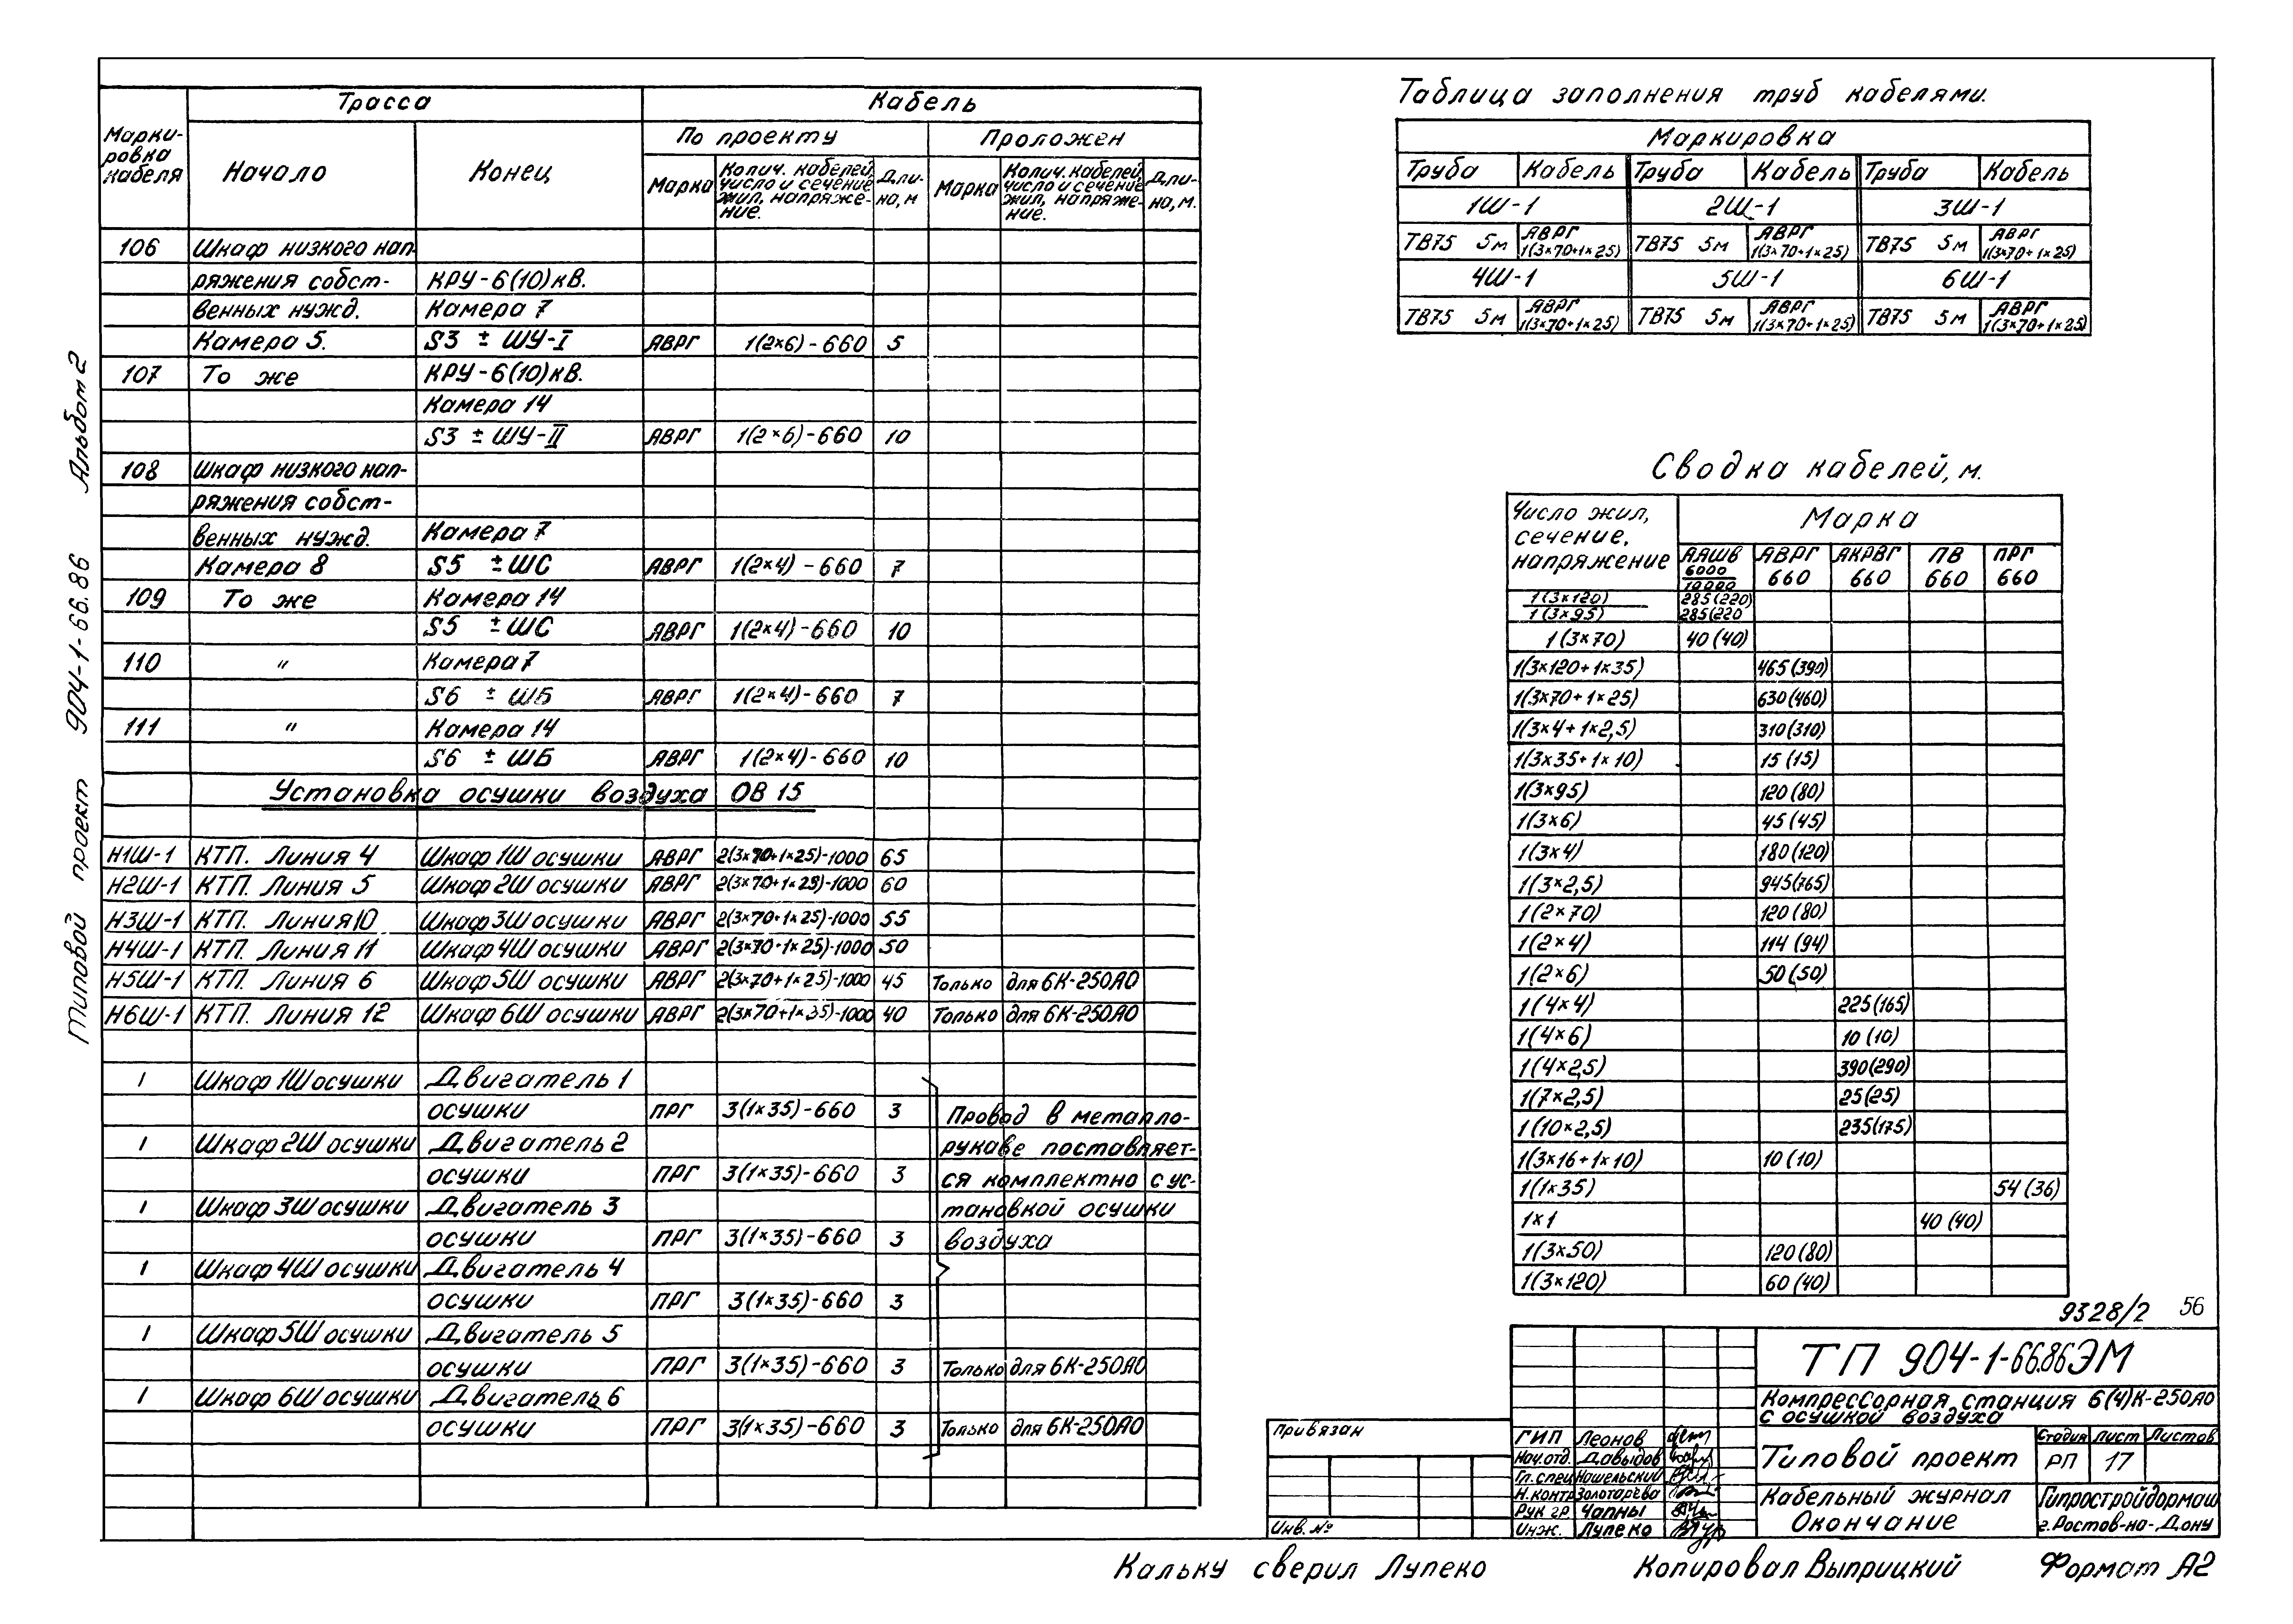 Типовой проект 904-1-66.86 Альбом 2
Марки-ровка кабеля Трасса Кабель
Начало Конец По проекту Проложен
Марка Колич. кабелей, число и сечение жил, напряже-ние. Дли-на, м Марка Колич. кабелей, число и сечение жил, напряже-ние. Дли-на, м.
106 Шкаф низкого нап-
ряжения собст- КРУ-6(10)кВ.
венных нужд. Камера 7
Камера 5. S3 ± ШУ-I АВРГ 1(2×6)-660 5
107 То же КРУ-6(10)кВ.
Камера 14
S3 ± ШУ-II АВРГ 1(2×6)-660 10
108 Шкаф низкого нап-
ряжения собст-
венных нужд. Камера 7
Камера 8 S5 ±ШС АВРГ 1(2×4)-660 7
109 То же Камера 14
S5 ±ШС АВРГ 1(2×4)-660 10
110 " Камера 7
S6 ± ШБ АВРГ 1(2×4)-660 7
111 " Камера 14
S6 ± ШБ АВРГ 1(2×4)-660 10
Установка осушки воздуха ОВ 15
Н1Ш-1 КТП. Линия 4 Шкаф 1Ш осушки АВРГ 2(3×70+1×25)-1000 65
Н2Ш-1 КТП. Линия 5 Шкаф 2Ш осушки АВРГ 2(3×70+1×25)-1000 60
Н3Ш-1 КТП. Линия 10 Шкаф 3Ш осушки АВРГ 2(3×70+1×25)-1000 55
Н4Ш-1 КТП. Линия 11 Шкаф 4Ш осушки АВРГ 2(3×70+1×25)-1000 50
Н5Ш-1 КТП. Линия 6 Шкаф 5Ш осушки АВРГ 2(3×70+1×25)-1000 45 Только для 6К-250АО
Н6Ш-1 КТП. Линия 12 Шкаф 6Ш осушки АВРГ 2(3×70+1×35)-1000 40 Только для 6К-250АО
1 Шкаф 1Ш осушки Двигатель 1
осушки ПРГ 3(1×35)-660 3 Провод в металло-
1 Шкаф 2Ш осушки Двигатель 2 рукаве поставляет-
осушки ПРГ 3(1×35)-660 3 ся комплектно с ус-
1 Шкаф 3Ш осушки Двигатель 3 тановкой осушки
осушки ПРГ 3(1×35)-660 3 воздуха
1 Шкаф 4Ш осушки Двигатель 4
осушки ПРГ 3(1×35)-660 3
1 Шкаф 5Ш осушки Двигатель 5
осушки ПРГ 3(1×35)-660 3 Только для 6К-250АО
1 Шкаф 6Ш осушки Двигатель 6
осушки ПРГ 3(1×35)-660 3 Только для 6К-250АО
Таблица заполнения труб кабелями.
Маркировка
Труба Кабель Труба Кабель Труба Кабель
1Ш-1 2Ш-1 3Ш-1
ТВ75 5м АВРГ 1(3×70+1×25) ТВ75 5м АВРГ 1(3×70+1×25) ТВ75 5м АВРГ 1(3×70+1×25)
4Ш-1 5Ш-1 6Ш-1
ТВ75 5м АВРГ 1(3×70+1×25) ТВ75 5м АВРГ 1(3×70+1×25) ТВ75 5м АВРГ 1(3×70+1×25)
Сводка кабелей, м.
Число жил, сечение, напряжение Марка
ААШВ 6000 10000 АВРГ 660 АКРВГ 660 ПВ 660 ПРГ 660
1(3×120) 285(220)
1(3×95) 285(220
1(3×70) 40(40)
1(3×120+1×35) 465(390)
1(3×70+1×25) 630(460)
1(3×4+1×2,5) 310(310)
1(3×35+1×10) 15(15)
1(3×95) 120(80)
1(3×6) 45(45)
1(3×4) 180(120)
1(3×2,5) 945(765)
1(2×70) 120(80)
1(2×4) 114(94)
1(2×6) 50(50)
1(4×4) 225(165)
1(4×6) 10(10)
1(4×2,5) 390(290)
1(7×2,5) 25(25)
1(10×2,5) 235(175)
1(3×16+1×10) 10(10)
1(1×35) 54(36)
1×1 40(40)
1(3×50) 120(80)
1(3×120) 60(40)
9328/2 56
ТП 904-1-66.86 ЭМ
Компрессорная станция 6(4)К-250АО
с осушкой воздуха
Типовой проект
Стадия Лист Листов
РП 17
Кабельный журнал
Окончание
Гипростройдормаш
г. Ростов-на-Дону
ГИП Леонов
Нач.отд. Давыдов
Гл. спец Нашельский
Н. контр Золотарева
Рук гр Чапны
Инж. Лупеко
Привязан
Инв. №
Кальку сверил Лупеко Копировал Выприцкий Формат А2